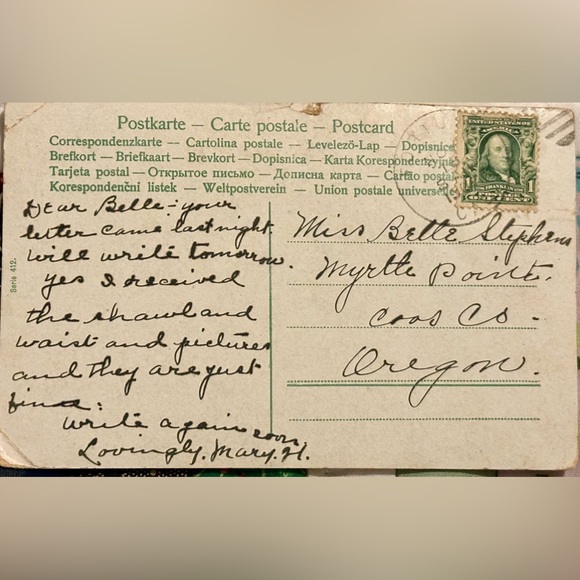 Postkarte — Carte postale — Postcard
Correspondenzkarte — Cartolina postale — Levelező-Lap — Dopisnice
Brefkort — Briefkaart — Brevkort — Dopisnica — Karta Korespondenzyjna
Tarjeta postal — Открытое письмо — Дописна карта — Cartão postal
Korespondenční listek — Weltpostverein — Union postale universelle
Serie 412.
Dear Belle:- your
letter came last night
will write tomorrow.
yes I received
the shawl and
waist and pictures
and they are just
fine:
write again soon,
Lovingly. Mary. H.
Miss Belle Stephens
Myrtle Point.
Coos Co -
Oregon.
1